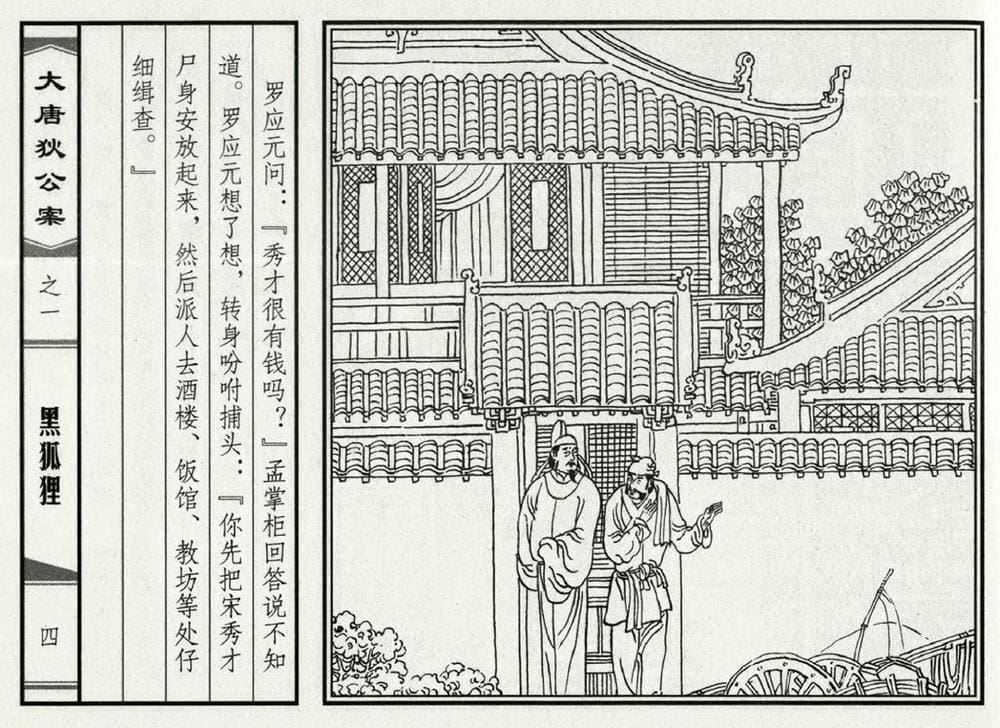 罗应元问：『秀才很有钱吗？』孟掌柜回答说不知
道。罗应元想了想，转身吩咐捕头：『你先把宋秀才
尸身安放起来，然后派人去酒楼、饭馆、教坊等处仔
细缉查。』
大唐狄公案
之一
黑狐狸
四